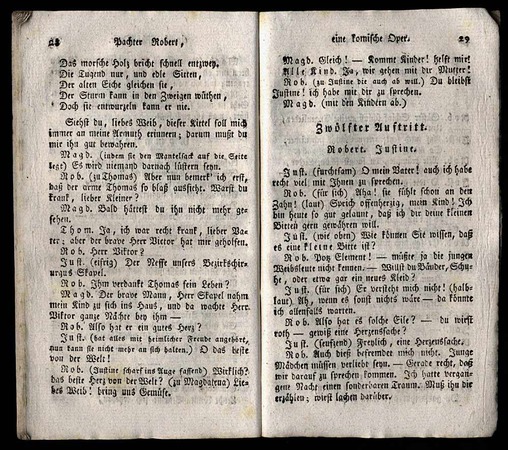 28 Pachter Robert,
Das morsche Holz bricht schnell entzwey.
Die Tugend nur, und edle Sitten,
Der alten Eiche gleichen sie,
Der Sturm kann in den Zweigen wüthen,
Doch sie entwurzeln kann er nie.
Siehst du, liebes Weib, dieser Kittel soll mich
immer an meine Armuth erinnern; darum mußt du
mir ihn gut bewahren.
Magd. (indem sie den Mantelsack auf die Seite
legt) Es wird niemand darnach lüstern seyn.
Rob. (zu Thomas) Aber nun bemerk' ich erst,
daß der arme Thomas so blaß aussieht. Warst du
krank, lieber Kleiner?
Magd. Bald hättest du ihn nicht mehr ge-
sehen.
Thom. Ja, ich war recht krank, lieber Va-
ter; aber der brave Herr Victor hat mir geholfen.
Rob. Herr Viktor?
Just. (eifrig) Der Neffe unsers Bezirkschir-
urgus Skapel.
Rob. Ihm verdankt Thomas sein Leben?
Magd. Der brave Mann, Herr Skapel nahm
mein Kind zu sich ins Haus, und da wachte Herr
Viktor ganze Nächte bey ihm —
Rob. Also hat er ein gutes Herz?
Just. (hat alles mit heimlicher Freude angehört,
nun kann sie nicht mehr an sich halten.) O das beste
von der Welt!
Rob. (Justine scharf ins Auge fassend) Wirklich?
das beste Herz von der Welt? (zu Magdalena) Lie-
bes Weib! bring uns Gemüse.
eine komische Oper. 29
Magd. Gleich! — Kommt Kinder! helft mir!
Alle Kind. Ja, wir gehen mit dir Mutter!
Rob. (zu Justine die auch ab will.) Du bleibst
Justine! ich habe mit dir zu sprechen.
Magd. (mit den Kindern ab.)
Zwölfter Auftritt.
Robert. Justine.
Just. (furchtsam) O mein Vater! auch ich habe
recht viel mit Ihnen zu sprechen.
Rob. (für sich) Aha! sie fühlt schon an den
Zahn! (laut) Sprich offenherzig, mein Kind! Ich
bin heute so gut gelaunt, daß ich dir deine kleinen
Bitten gern gewähren will.
Just. (wie oben) Wie können Sie wissen, daß
es eine kleine Bitte ist?
Rob. Potz Element! — müßte ja die jungen
Weibsleute nicht kennen. — Willst du Bänder, Schu-
he, oder etwa gar ein neues Kleid?
Just. (für sich) Er versteht mich nicht! (halb-
laut) Ah, wenn es sonst nichts wäre — da könnte
ich allenfalls warten.
Rob. Also hat es solche Eile? — du wirst
roth — gewiß eine Herzenssache?
Just. (seufzend) Freylich, eine Herzenssache.
Rob. Auch dieß befremdet mich nicht. Junge
Mädchen müssen verliebt seyn. — Gerade recht, daß
wir darauf zu sprechen kommen. Ich hatte vergan-
gene Nacht einen sonderbaren Traum. Muß ihn dir
erzählen; wirst lachen darüber.